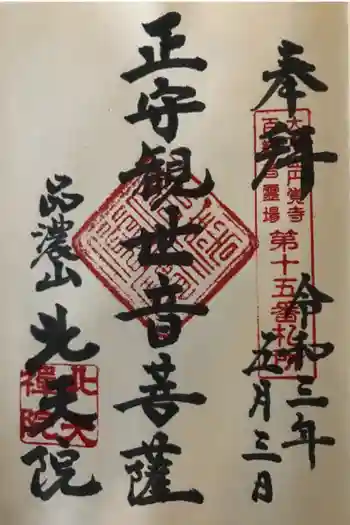 奉拝
百観音霊場
第十五番札所
令和三年
五月三日
正守観世音菩薩
品濃山
北天院